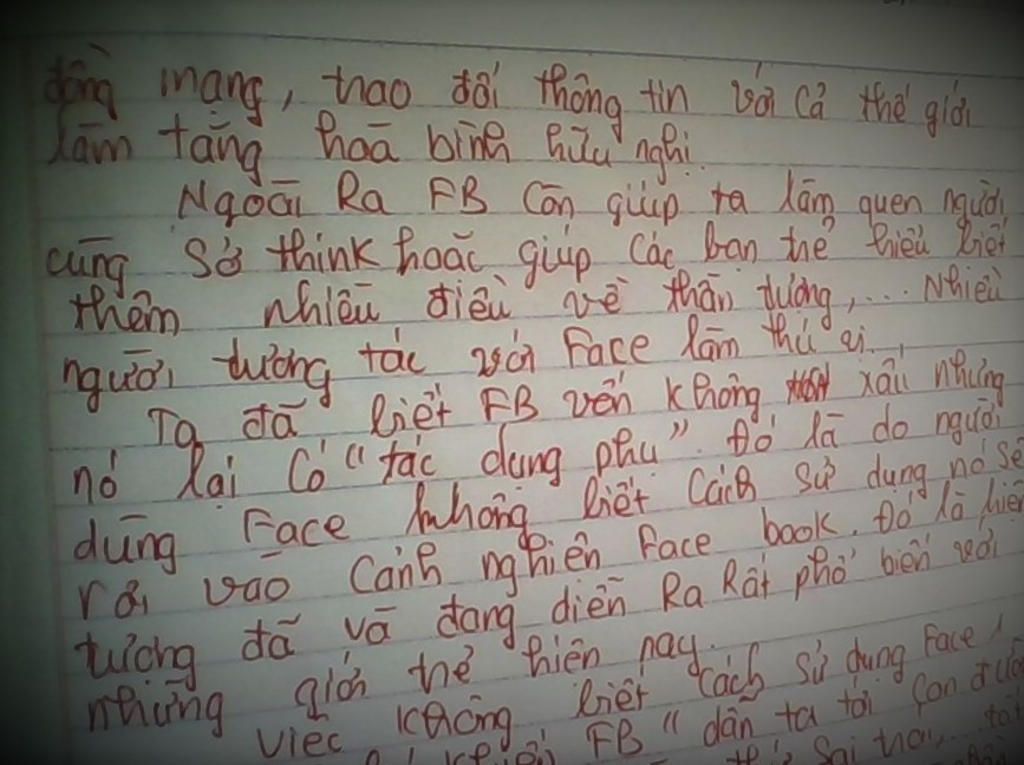 đồng mạng, trao đổi thông tin với cả thế giới
làm tăng hoà bình hữu nghị.
Ngoài Ra FB còn giúp ta làm quen người
cùng sở think hoặc giúp các bạn trẻ hiểu biết
thêm nhiều điều về thần tượng,... Nhiều
người tương tác với Face làm thú vị.
Ta đã biết FB vốn không xấu nhưng
nó lại có "tác dụng phụ". Đó là do người
dùng Face không biết cách sử dụng nó sẽ
rơi vào cảnh nghiện Face book. Đó là hiện
tượng đã và đang diễn Ra Rất phổ biến với
những giới trẻ hiện nay.
Việc không biết cách sử dụng Face
FB" dẫn ta tới con đườ
sai trái,...